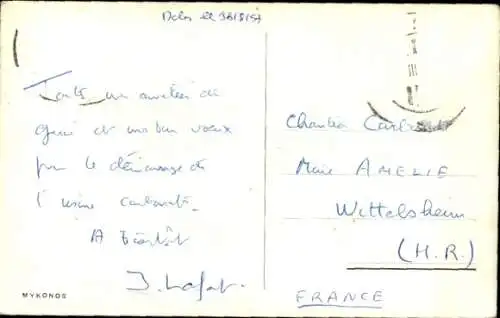 Delos le 28/8/57
Toutes mes amitiés de
Grèce et mes bons voeux
pour le démarrage de
l'usine carbonate.
A bientôt
MYKONOS
Chantier
Mine AMELIE
Wittelsheim
(H.R.)
FRANCE